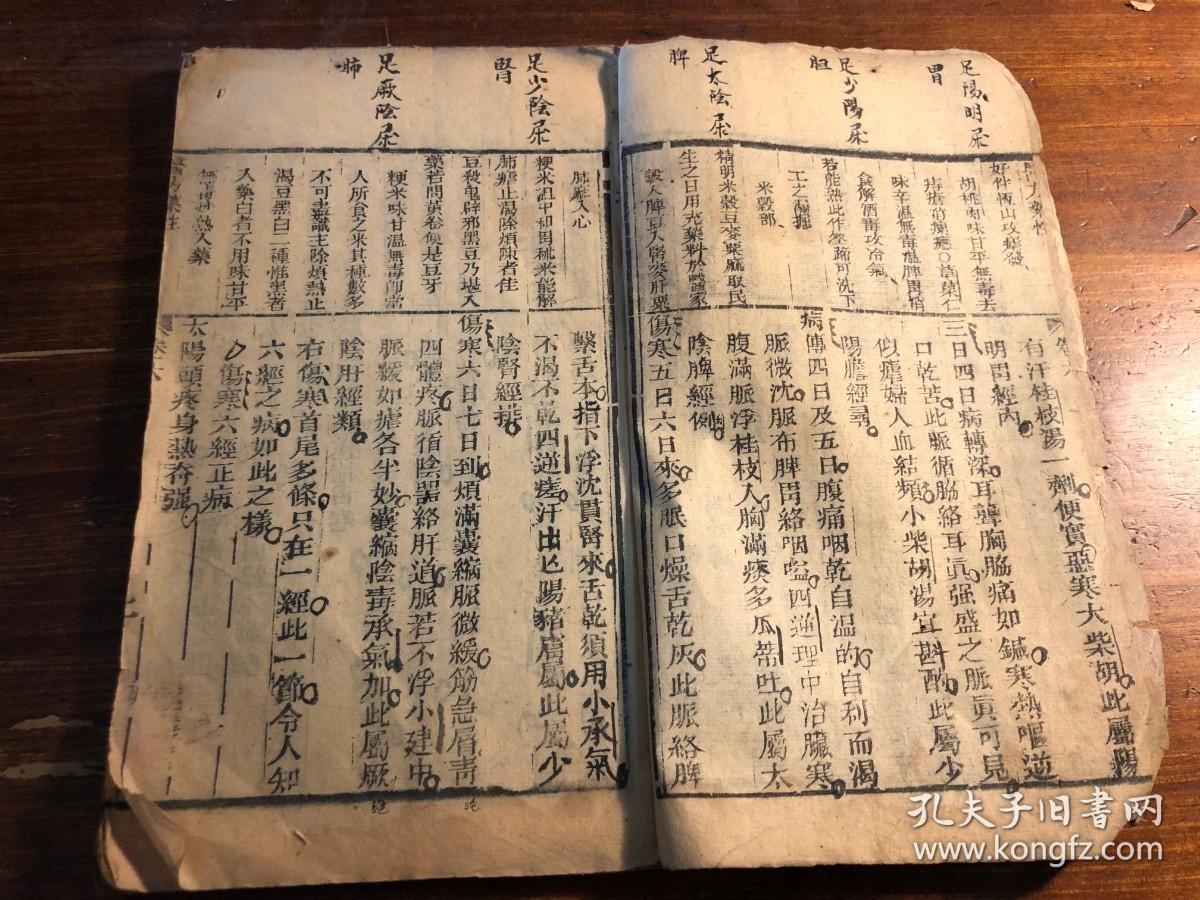 足陽明尿
胃
足少陽尿
胆
足太陰尿
脾
好件恆山攻瘧發
胡桃肉味甘平無毒去
味辛溫無毒溫脾胃消
食解酒毒攻冷氣
若能熟此作
工之
米穀部
精明米穀豆麥粟麻取民
生之日用充藥料於醫家
穀人脾豆人腎麥肝粟
有汗桂枝湯一劑便實惡寒大柴胡此屬陽
明胃經內
三日四日病轉深耳聾胸脇痛如鍼寒熱嘔逆
口乾苦此脈循脇絡耳真强盛之脈真可見
似瘧婦人血結頻小柴胡湯宜斟酌此屬少
陽膽經尋
病傳四日及五日腹痛咽乾自温的自利而渴
脈微沈脈布脾胃絡咽嗌四逆理中治臟寒
腹滿脈浮桂枝人胸滿痰多瓜蒂吐此屬太
陰脾經例
傷寒五日六日來多眠口燥舌乾灰此脈絡脾
足少陰尿
腎
足厥陰尿
肺
肺應入心
粳米溫中和胃秫米能解
肺瘧止渴除煩陳者佳
豆殺鬼辟邪黑豆乃堪入
藥若問黃卷便是豆牙
粳米味甘溫無毒即常
人所食之米其種數多
不可盡識主除煩熱止
渴豆黑白二種惟黑者
入藥白者不用味甘平
無毒熱入藥
繫舌本指下浮沈貫腎來舌乾須用小承氣
不渴不乾四逆瘥汗出亡陽豬膚屬此屬少
陰腎經排
傷寒六日七日到煩滿囊縮脈微緩筋急唇青
四體疼脈循陰器絡肝道脈若不浮小建中
脈緩如瘧各半妙囊縮陰毒承氣加此屬厥
陰肝經類
右傷寒首尾多條只在一經此一節令人知
六經之病如此之樣
傷寒六經正病
太陽頭疼身熱脊强
孔夫子旧书网
www.kongfz.com